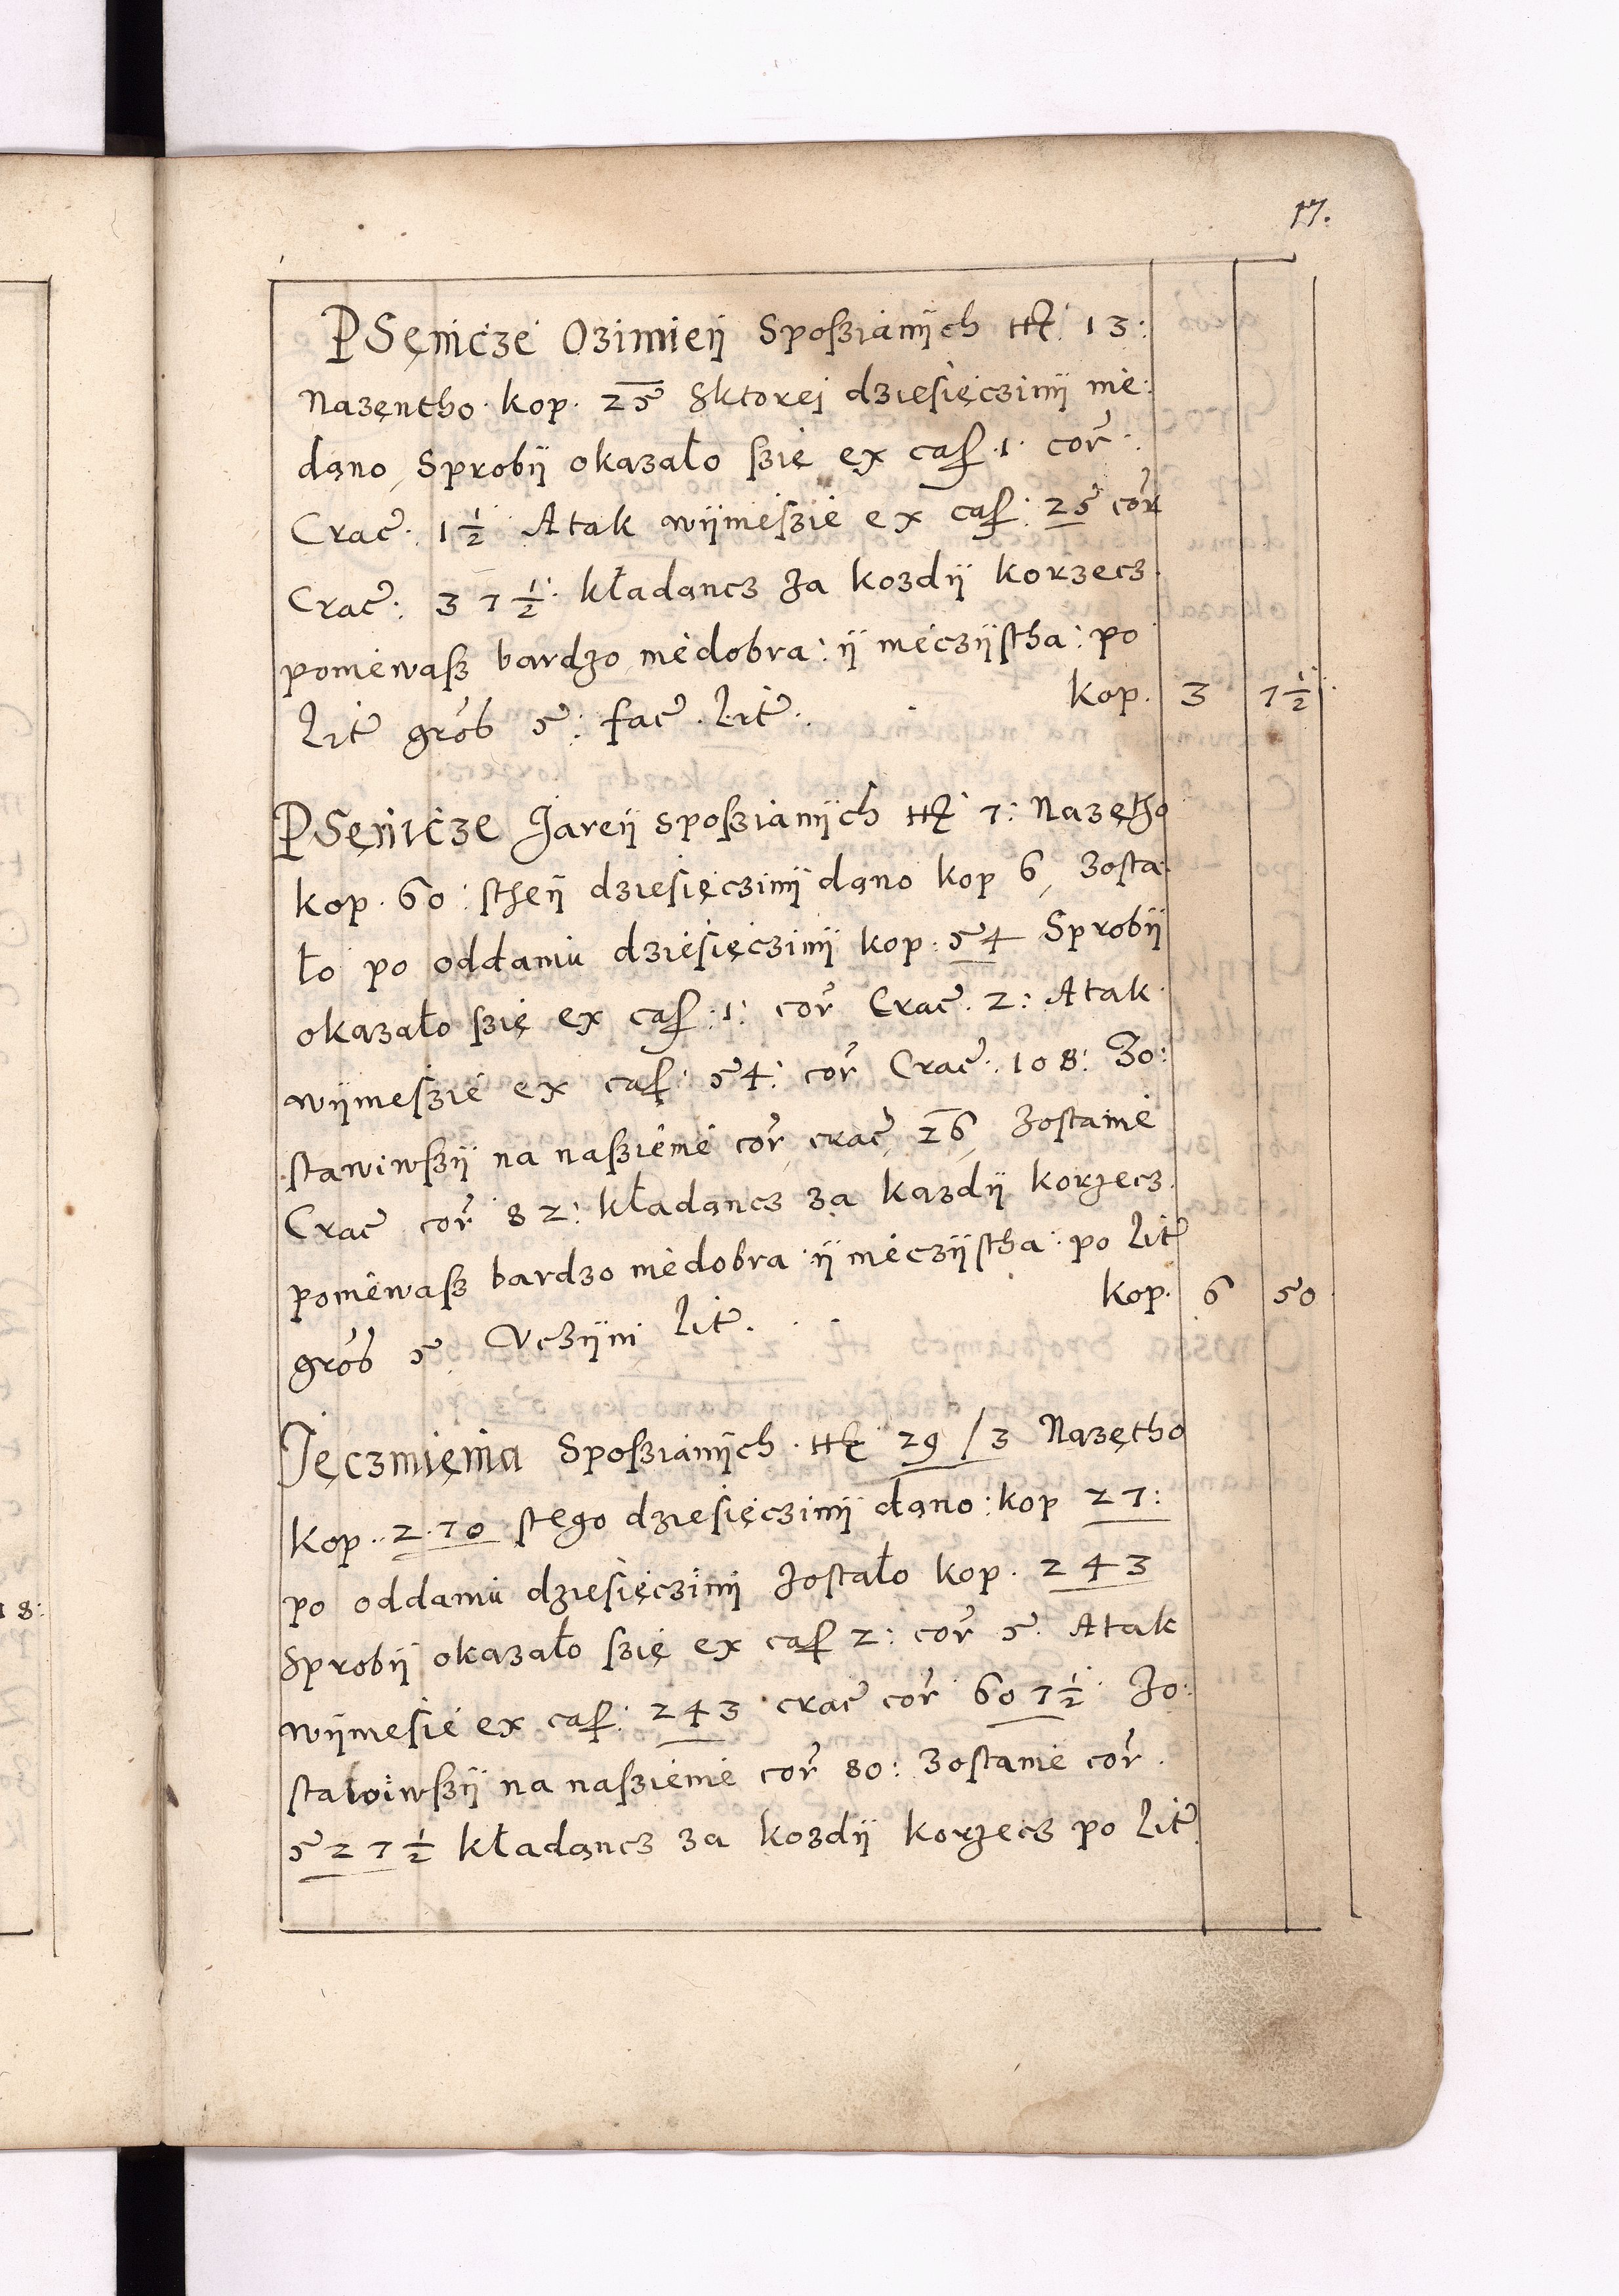 17.
PSęnicze Ozimieij Sposzianijch ttk 13:
Nazęntho kop. 25 Sktorej dziesięczinij nie:
dąno, Sprobij okazało szię ex cas. 1. cor.
Crac. 1½ Atak wijnieszie ex cas: 25 cor
Crac: 37½: kładąncz za kozdij korzecz.
poniewasz bardzo niedobra: ij nieczijstha: po
Lit grob 5: fac. Lit. kop. 3 7½
PSęnicze Jareij sposzianijch ttk 7: Nazętho
kop. 60: stheij dziesięczinij dąno kop 6, Zosta
ło po oddaniu dziesięczinij kop: 54 Sprobij
okazało szię ex cas: 1: cor Crac. 2: Atak
wijnieszie ex cas: 54: cor Crac. 108: Zo:
stawiwszij na naszienie cor, crac, 26, Zostanie
Crac cor 82: kładąncz za kazdij korzecz.
poniewasz bardzo niedobra ij nieczijstha: po Lit
grob 5. Vczijni Lit. kop. 6 50
Jęczmięnia Sposzianijch. ttk 29/3 Nazętho
kop. 270 stego dziesięczinij dano: kop 27:
po oddaniu dziesięczinij Zostało kop. 243
Sprobij okazało szię ex cas 2: cor 5. Atak
wijniesie ex cas: 243 crac cor 607½ Zo:
stawiwszij na naszienie cor 80: Zostanie cor.
527½ kładąncz za kozdij korzecz po Lit
18: